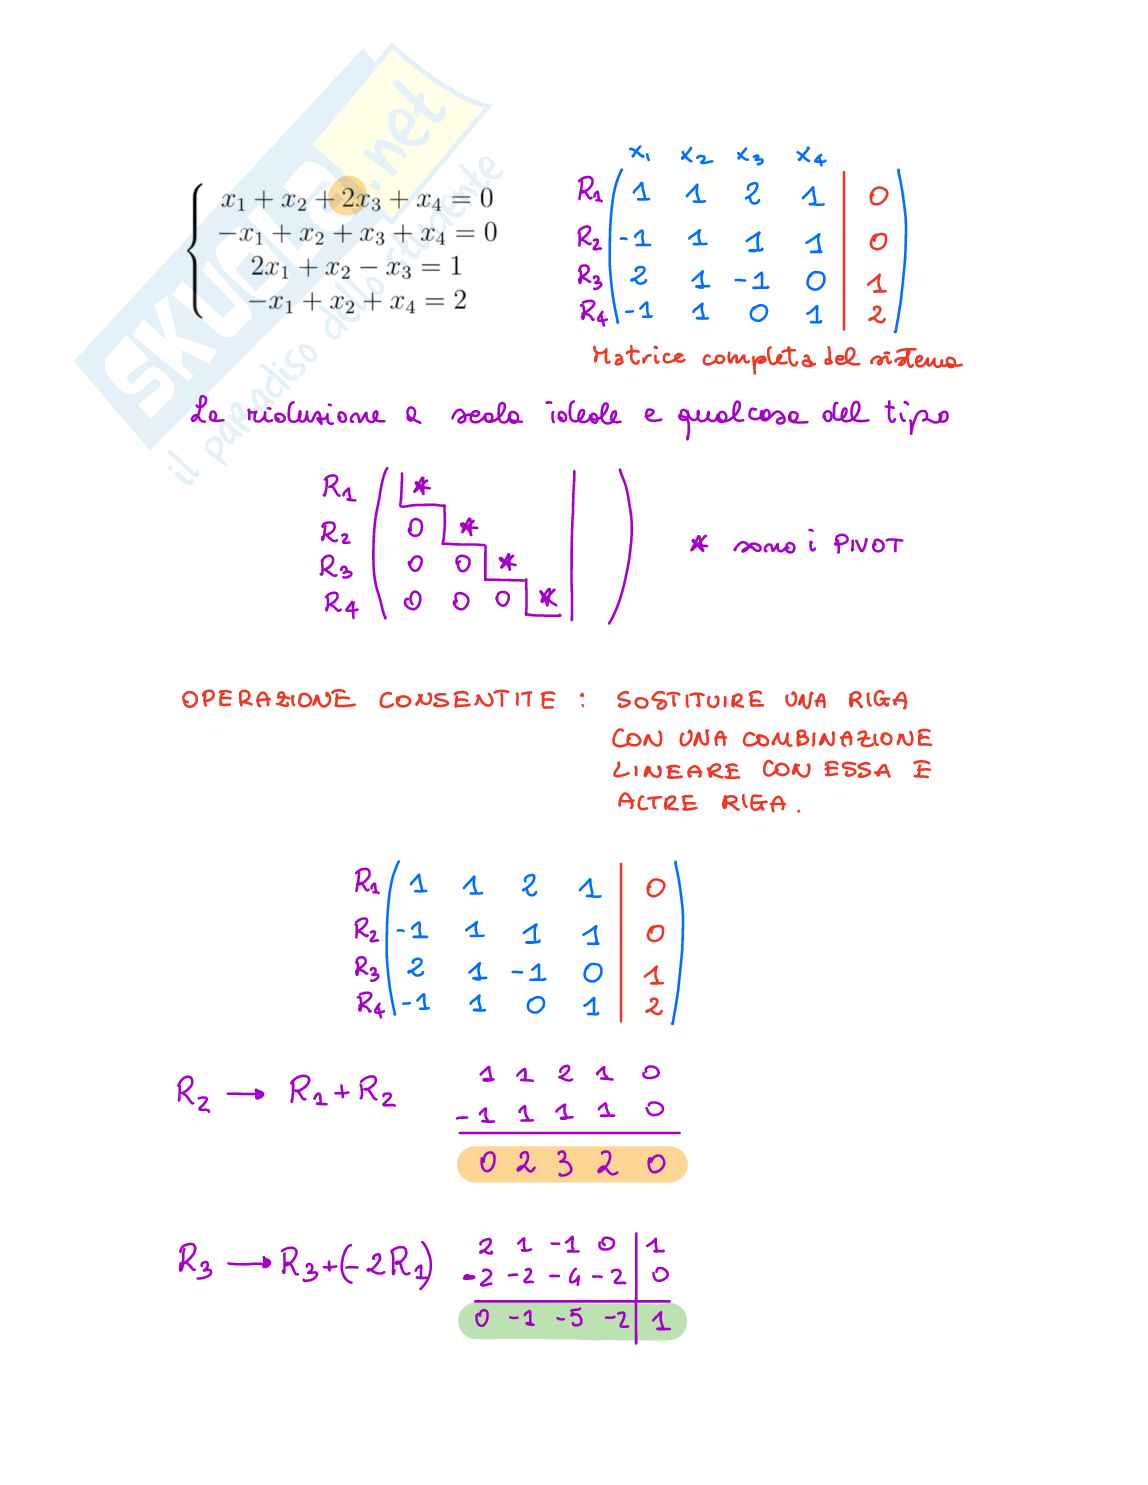 SKUOLA.net
il paradiso dello studente
x₁ + x₂ + 2x₃ + x₄ = 0
−x₁ + x₂ + x₃ + x₄ = 0
2x₁ + x₂ − x₃ = 1
−x₁ + x₂ + x₄ = 2
x₁ x₂ x₃ x₄
R₁ 1 1 2 1 0
R₂ -1 1 1 1 0
R₃ 2 1 -1 0 1
R₄ -1 1 0 1 2
Matrice completa del sistema
La riduzione a scala ideale e qualcosa del tipo
R₁ *
R₂ 0 *
R₃ 0 0 *
R₄ 0 0 0 *
* sono i PIVOT
OPERAZIONE CONSENTITE : SOSTITUIRE UNA RIGA
CON UNA COMBINAZIONE
LINEARE CON ESSA E
ALTRE RIGA.
R₁ 1 1 2 1 0
R₂ -1 1 1 1 0
R₃ 2 1 -1 0 1
R₄ -1 1 0 1 2
R₂ → R₁ + R₂
1 1 2 1 0
-1 1 1 1 0
0 2 3 2 0
R₃ → R₃ + (-2R₁)
2 1 -1 0 1
-2 -2 -4 -2 0
0 -1 -5 -2 1